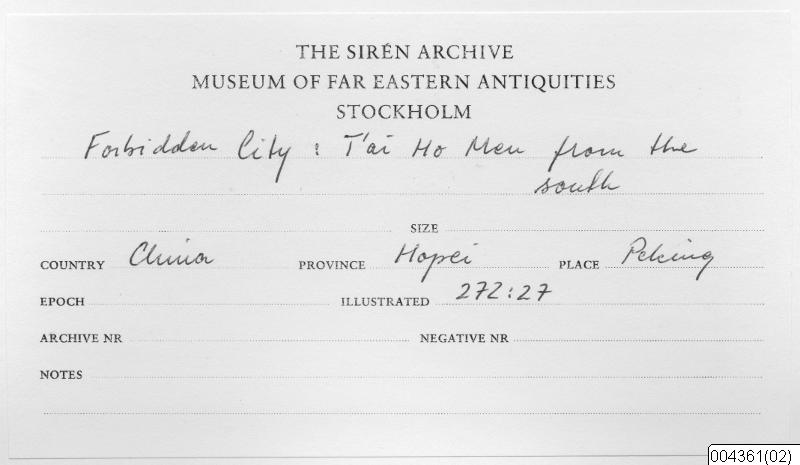 THE SIRÉN ARCHIVE
MUSEUM OF FAR EASTERN ANTIQUITIES
STOCKHOLM
Forbidden City : T'ai Ho Men from the
south
SIZE
COUNTRY China PROVINCE Hopei PLACE Peking
EPOCH ILLUSTRATED 272:27
ARCHIVE NR NEGATIVE NR
NOTES
004361(02)